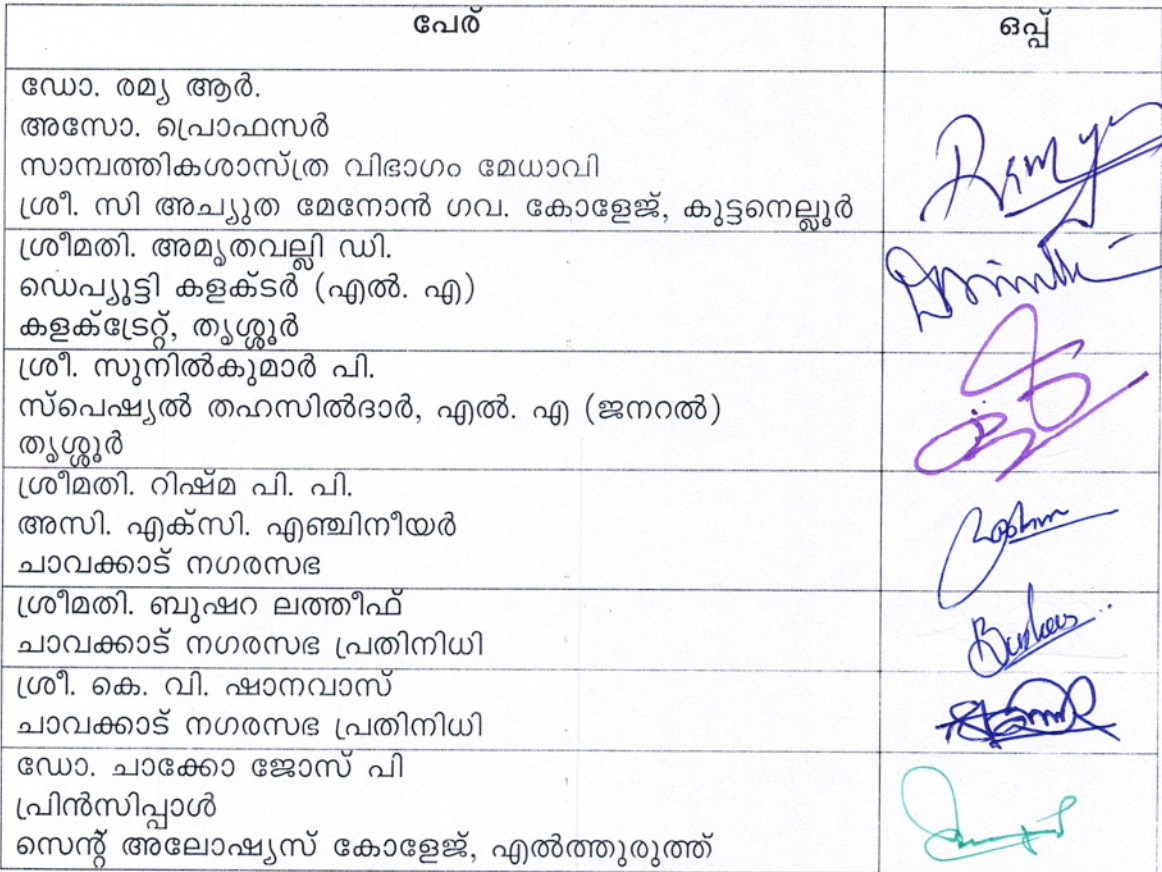 പേര് ഒപ്പ്
ഡോ. രമ്യ ആർ.
അസോ. പ്രൊഫസർ
സാമ്പത്തികശാസ്ത്ര വിഭാഗം മേധാവി
ശ്രീ. സി അച്യുത മേനോൻ ഗവ. കോളേജ്, കുട്ടനെല്ലൂർ
Ramya
ശ്രീമതി. അമൃതവല്ലി ഡി.
ഡെപ്യൂട്ടി കളക്ടർ (എൽ. എ)
കളക്ട്രേറ്റ്, തൃശ്ശൂർ
ശ്രീ. സുനിൽകുമാർ പി.
സ്പെഷ്യൽ തഹസിൽദാർ, എൽ. എ (ജനറൽ)
തൃശ്ശൂർ
ശ്രീമതി. റിഷ്മ പി. പി.
അസി. എക്സി. എഞ്ചിനീയർ
ചാവക്കാട് നഗരസഭ
ശ്രീമതി. ബുഷറ ലത്തീഫ്
ചാവക്കാട് നഗരസഭ പ്രതിനിധി
ശ്രീ. കെ. വി. ഷാനവാസ്
ചാവക്കാട് നഗരസഭ പ്രതിനിധി
ഡോ. ചാക്കോ ജോസ് പി
പ്രിൻസിപ്പാൾ
സെന്റ് അലോഷ്യസ് കോളേജ്, എൽത്തുരുത്ത്